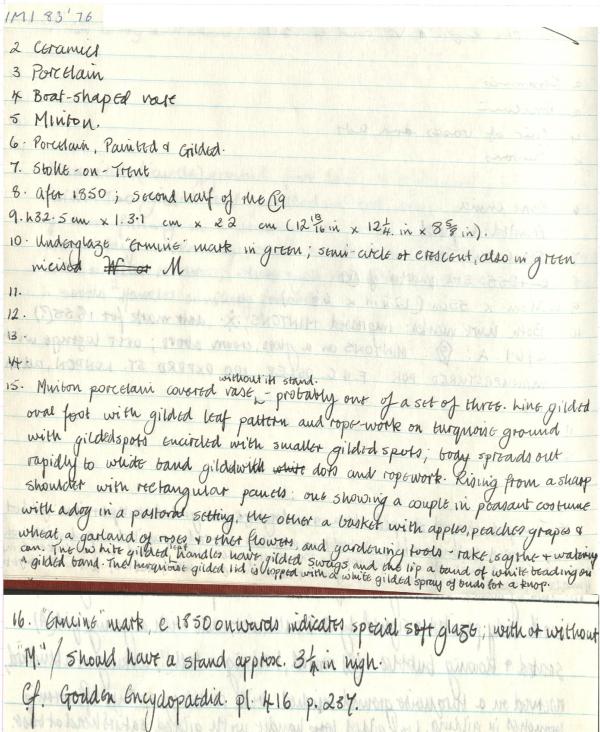 IMI 83'76
2 Ceramics
3 Porcelain
4 Boat-shaped vase
5 Minton.
6. Porcelain, Painted & Gilded.
7. Stoke-on-Trent
8. After 1850; second half of the C19
9. h32.5 cm x l.31 cm x 22 cm (12 13/16 in x 12 1/4 in x 8 5/8 in).
10. Underglaze "Ermine" mark in green; semi-circle or crescent, also in green
incised M
11.
12.
13.
14.
without its stand.
15. Minton porcelain covered vase - probably one of a set of three. Line gilded
oval foot with gilded leaf pattern and rope-work on turquoise ground
with gilded spots encircled with smaller gilded spots; body spreads out
rapidly to white band gilded with dots and ropework. Rising from a sharp
shoulder with rectangular panels: one showing a couple in peasant costume
with a dog in a pastoral setting, the other a basket with apples, peaches grapes &
wheat, a garland of roses & other flowers and gardening tools - rake, scythe & watering
can. The white gilded handles have gilded swags, and the lip a band of white beading on
a gilded band. The turquoise gilded lid is topped with a white gilded spray of buds for a knop.
16. "Ermine" mark, c 1850 onwards indicates special soft glaze; with or without
"M." / Should have a stand approx. 3 1/2 in high.
Cf. Godden Encyclopaedia. pl. 416 p. 237.